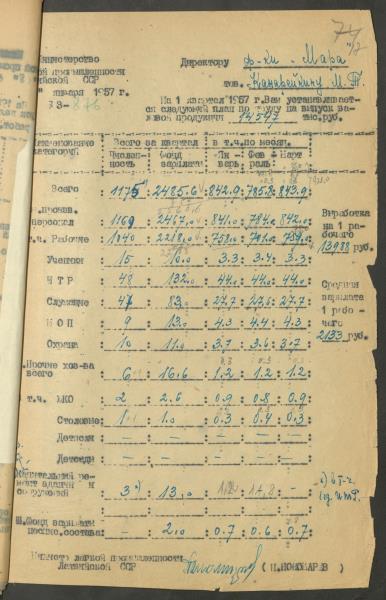 Директору ф-ки "Мара"
тов. Канарейкину М.Т.
января 1957 г.
3-876
На 1 квартал 1957 г. Вам устанавливает-
ся следующий план по труду на выпуск ва-
ловой продукции 14547 тыс.руб.
Всего за квартал : в т.ч. по месяц.
Числен-ность : Фонд зарплаты : Ян-варь : Фев-раль : Март
Всего 1175 : 2485.6 : 842.9 : 785.8 : 843.9
персонал 1169 : 2467.0 : 841.0 : 784.0 : 842.0
т.ч. Рабочие 1040 : 2218.0 : 758.0 : 701.0 : 759.0
Ученики 15 : 10.0 : 3.3 : 3.4 : 3.3
ИТР 48 : 132.0 : 44.0 : 44.0 : 44.0
Служащие 47 : 83.0 : 27.7 : 27.6 : 27.7
МОП 9 : 13.0 : 4.3 : 4.4 : 4.3
Охрана 10 : 11.0 : 3.7 : 3.6 : 3.7
Прочие хоз-ва
всего 6 : 16.6 : 1.2 : 1.2 : 1.2
т.ч. ЖКО 2 : 2.6 : 0.9 : 0.8 : 0.9
Столовые 1 : 1.0 : 0.3 : 0.4 : 0.3
Детясли – : – : – : – : –
Детсады – : – : – : – : –
Капитальный ре-
монт зданий и
сооружений 3 : 13.0
Ш.Фонд зарплаты
неспис.состава – : 2.0 : 0.7 : 0.6 : 0.7
Выработка
на 1 ра-
бочего
13988 руб.
Средняя
зарплата
1 рабо-
чего
2133 руб.
Министр легкой промышленности
Латвийской ССР